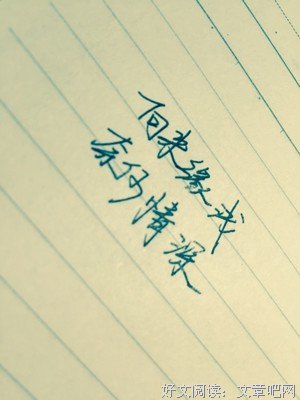 向来缘浅
奈何情深
好文阅读：文章吧网